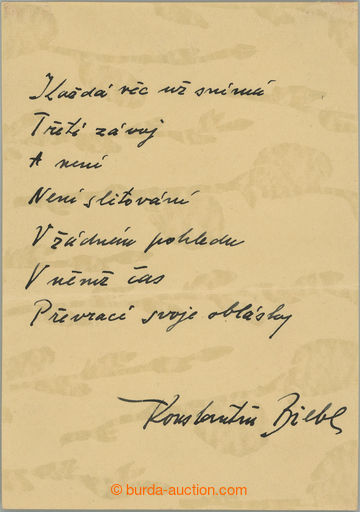 Každá věc už snímá
Třetí závoj
A není
Není slitování
V žádném pohledu
V němž čas
Převrací svoje oblázky
Konstantin Biebl
© burda-auction.com